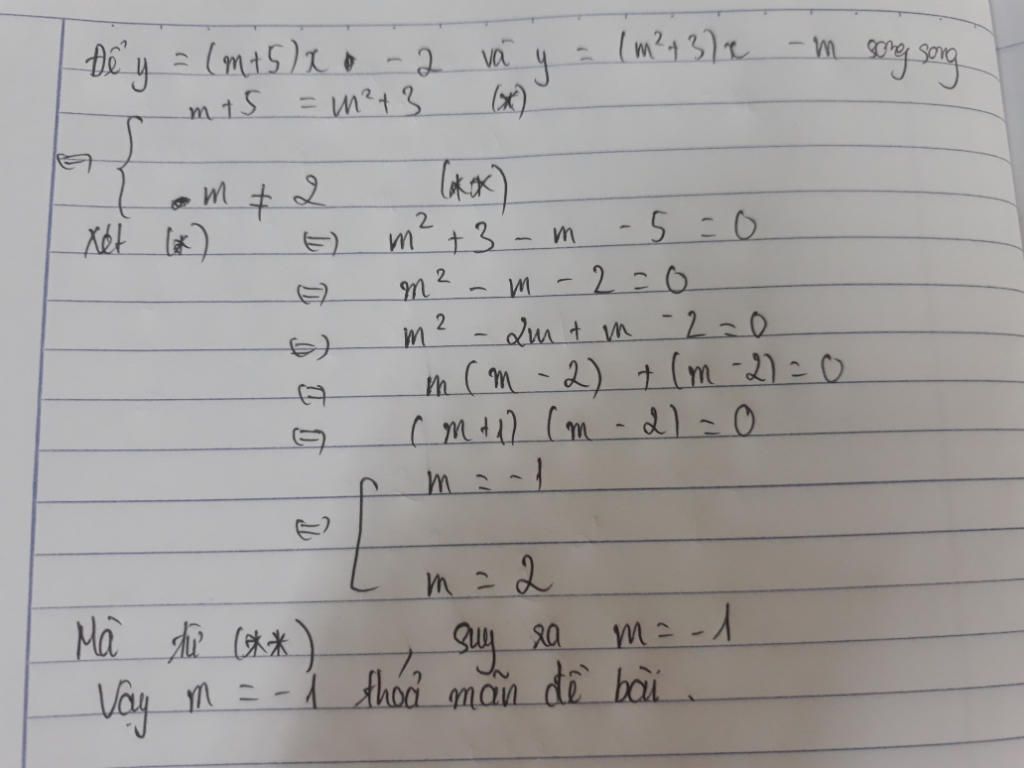 Để y = (m+5)x - 2 và y = (m²+3)x - m song song
m+5 = m²+3 (*)
⇔ {
m ≠ 2 (**)
Xét (*) ⇔ m² + 3 - m - 5 = 0
⇔ m² - m - 2 = 0
⇔ m² - 2m + m - 2 = 0
⇔ m(m - 2) + (m - 2) = 0
⇔ (m+1)(m - 2) = 0
m = -1
⇔ [
m = 2
Mà từ (**), suy ra m = -1
Vậy m = -1 thoả mãn đề bài.